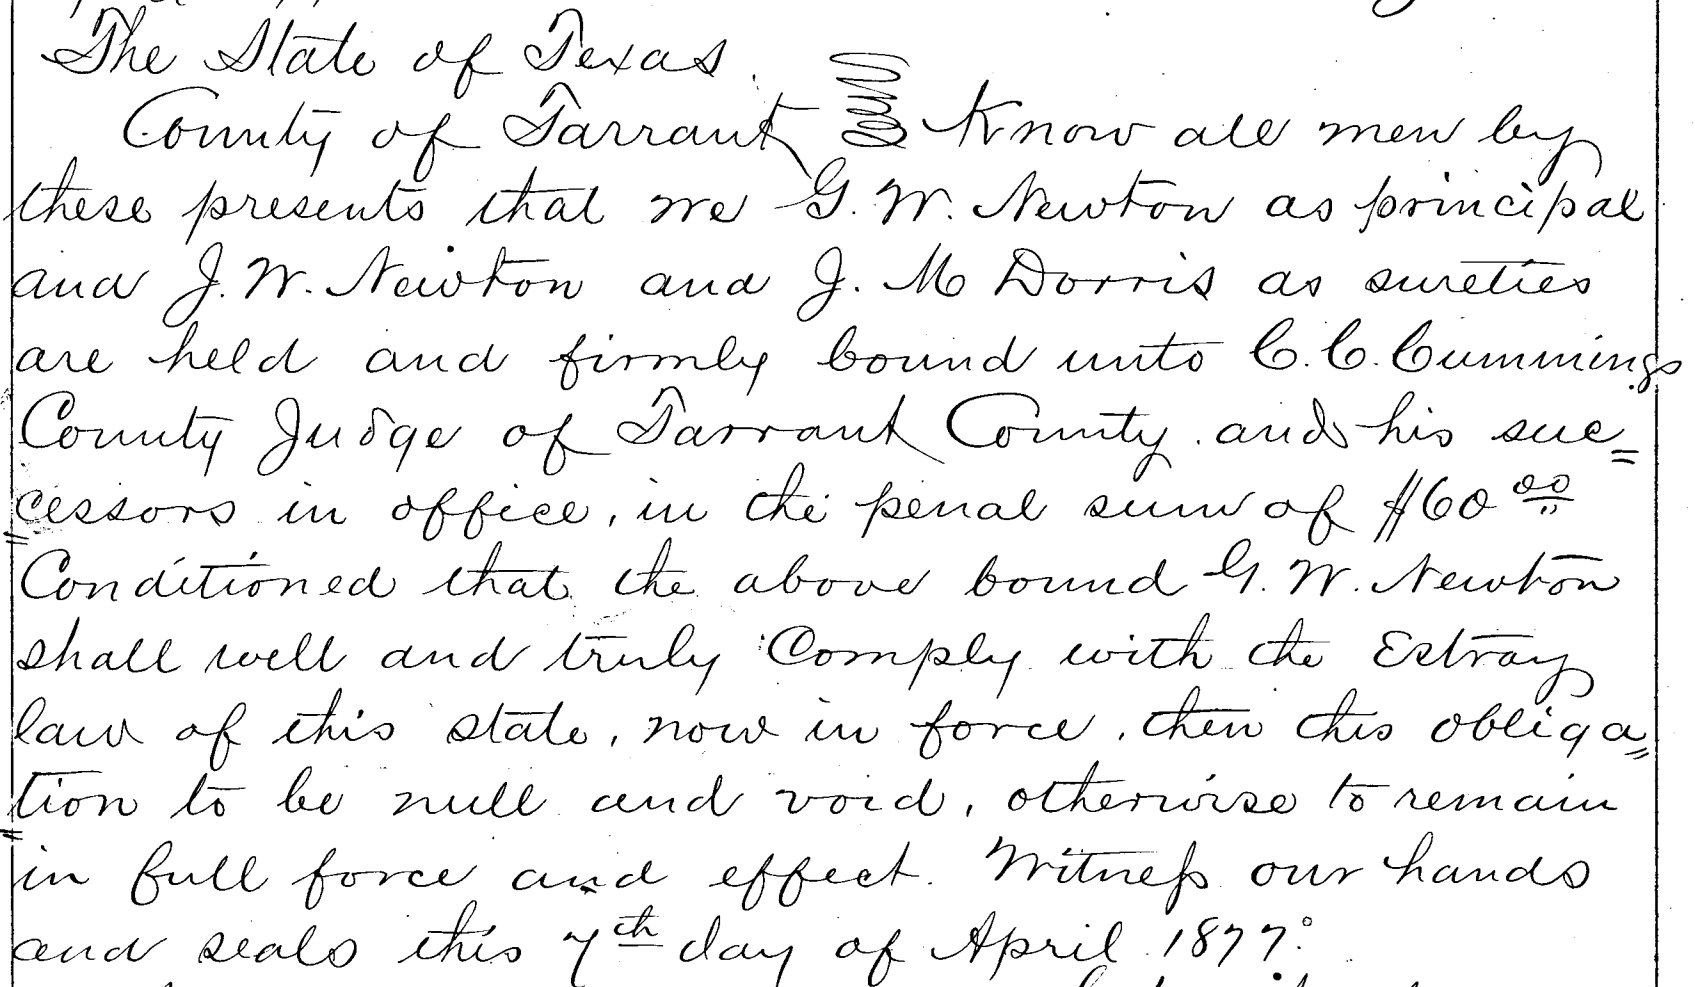 The State of Texas.
County of Tarrant Know all men by
these presents that we G. W. Newton as principal
and J. W. Newton and J. M Dorris as sureties
are held and firmly bound unto C. C. Cummings
County Judge of Tarrant County and his suc=
cessors in office, in the penal sum of $60 00
Conditioned that the above bound G. W. Newton
shall well and truly Comply with the Estray
law of this state, now in force, then this obliga=
=tion to be null and void, otherwise to remain
in full force and effect. Witness our hands
and seals this 7th day of April 1877.